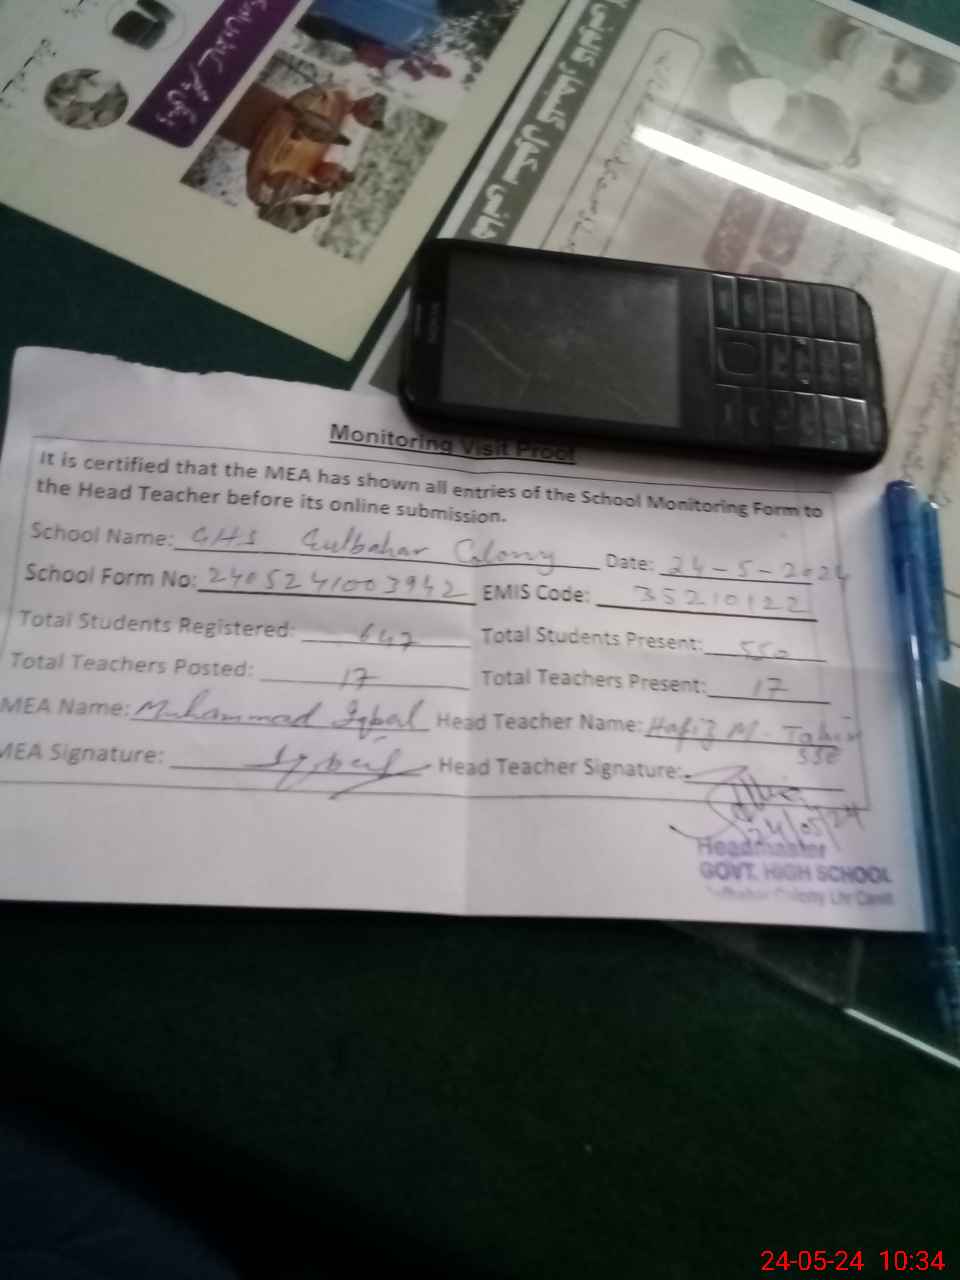 Monitoring Visit Proof
It is certified that the MEA has shown all entries of the School Monitoring Form to
the Head Teacher before its online submission.
School Name: GHS Gulbahar Colony Date: 24-5-2024
School Form No: 2405241003942 EMIS Code: 35210122
Total Students Registered: 647 Total Students Present: 550
Total Teachers Posted: 17 Total Teachers Present: 17
MEA Name: Muhammad Iqbal Head Teacher Name: Hafiz M. Tahir
SSE
MEA Signature: Iqbal Head Teacher Signature:
24/05/24
Headmaster
GOVT. HIGH SCHOOL
Gulbahar Colony Lhr Cantt
24-05-24 10:34